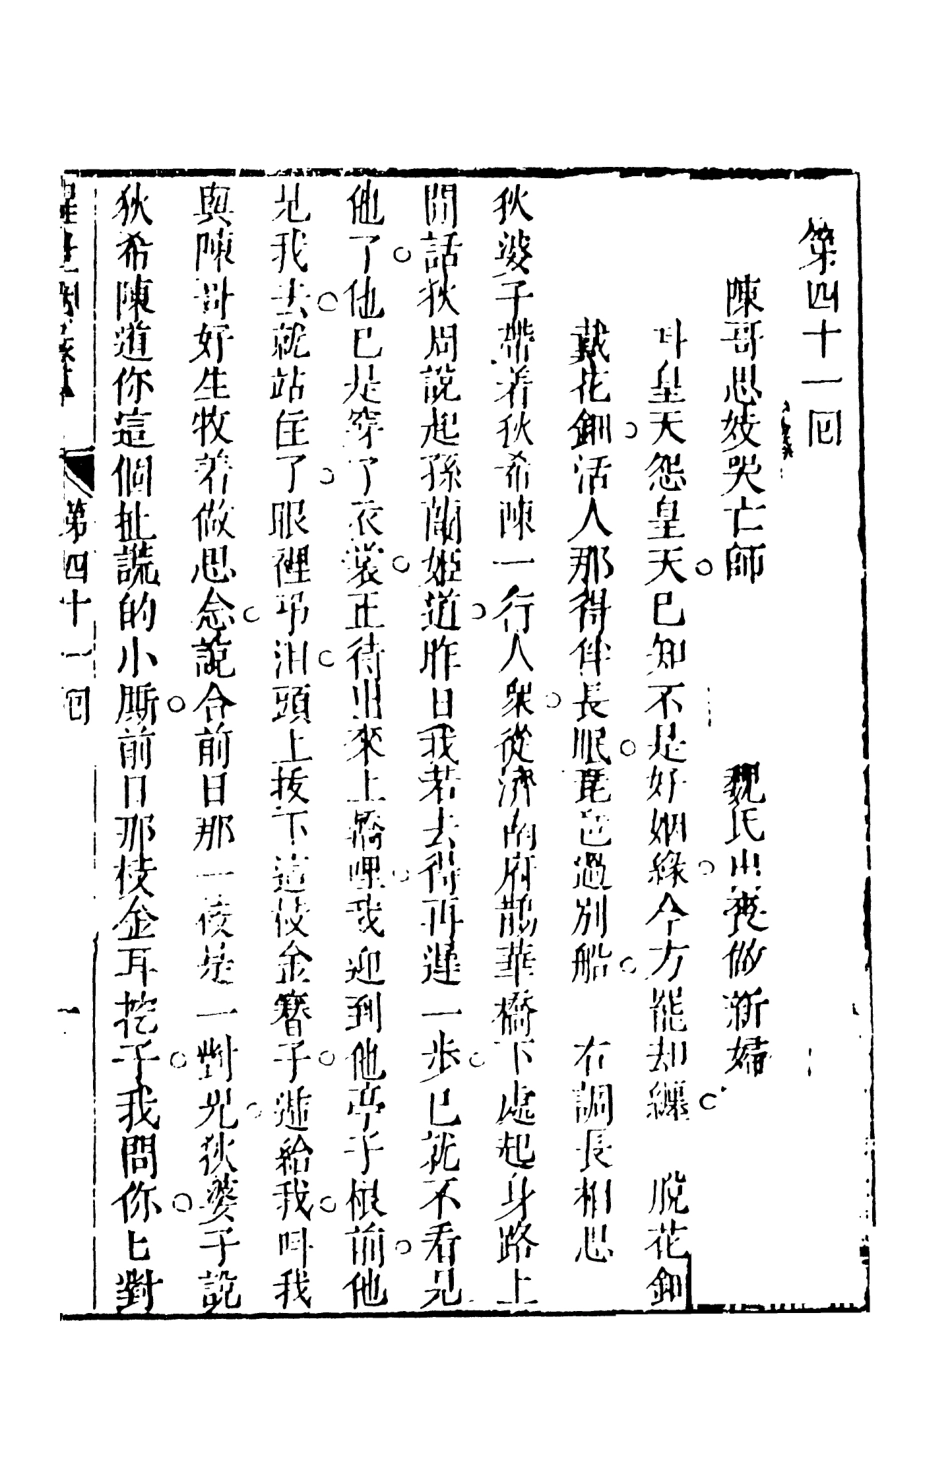 第四十一回
陳哥思妓哭亡師　魏氏出喪做新婦
叫皇天怨皇天○已知不是好姻緣○今方罷却纏○　脫花鈿
戴花鈿○活人那得伴長眠○琵琶過別船○　右調長相思
狄婆子帶着狄希陳一行人衆○從濟南府鵲華橋下處起身路上
閒話狄周說起孫蘭姬道○昨日我若去得再遲一步○已就不看見
他了○他已是穿了衣裳○正待出來上轎哩○我迎到他亭子根前○他
見我去○就站住了○眼裡吊泪○頭上拔下這枝金簪子○遞給我○叫我
與陳哥好生收着做思念○說合前日那一枝是一對兒○狄婆子說
狄希陳道你這個扯謊的小厮○前日那枝金耳挖子○我問你○你對
醒世姻緣傳　第四十一回　一